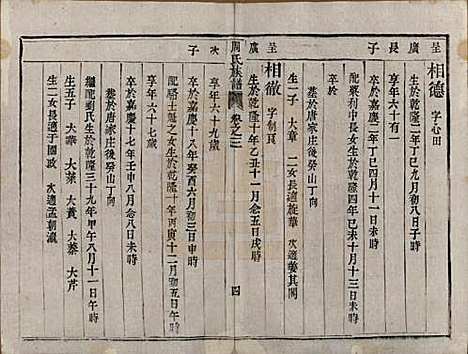 呈廣長子
相德 字心田
生於乾隆二年丁巳九月初八日子時
卒於嘉慶二年丁巳四月十八日時
享年六十有一
配栗利中長女生於乾隆四年己未十月十三日未時
葬於唐家庄後癸山丁向
生一子 大章 二女長適旋華 次適姜其閣
呈廣次子
相徹 字制艮
生於乾隆十年乙丑十一月念五日戌時
卒於嘉慶十八年癸酉六月初三日申時
享年六十九歲
周氏族譜 卷之三 四
配騎士魁之女生於乾隆十年丙寅十二月初五日午時
卒於嘉慶十七年壬申八月念八日未時
享年六十七歲
葬於唐家庄後癸山丁向
繼配劉氏生於乾隆三十九年甲午八月十一日午時
生五子 大華 大萊 大賁 大蔡 大芹
生二女長適于國政 次適孟朝瀛